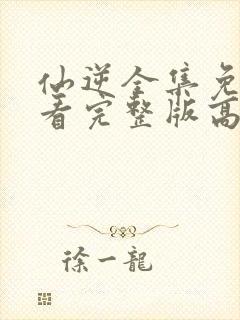 仙逆全集免
看完整版高
徐一龙